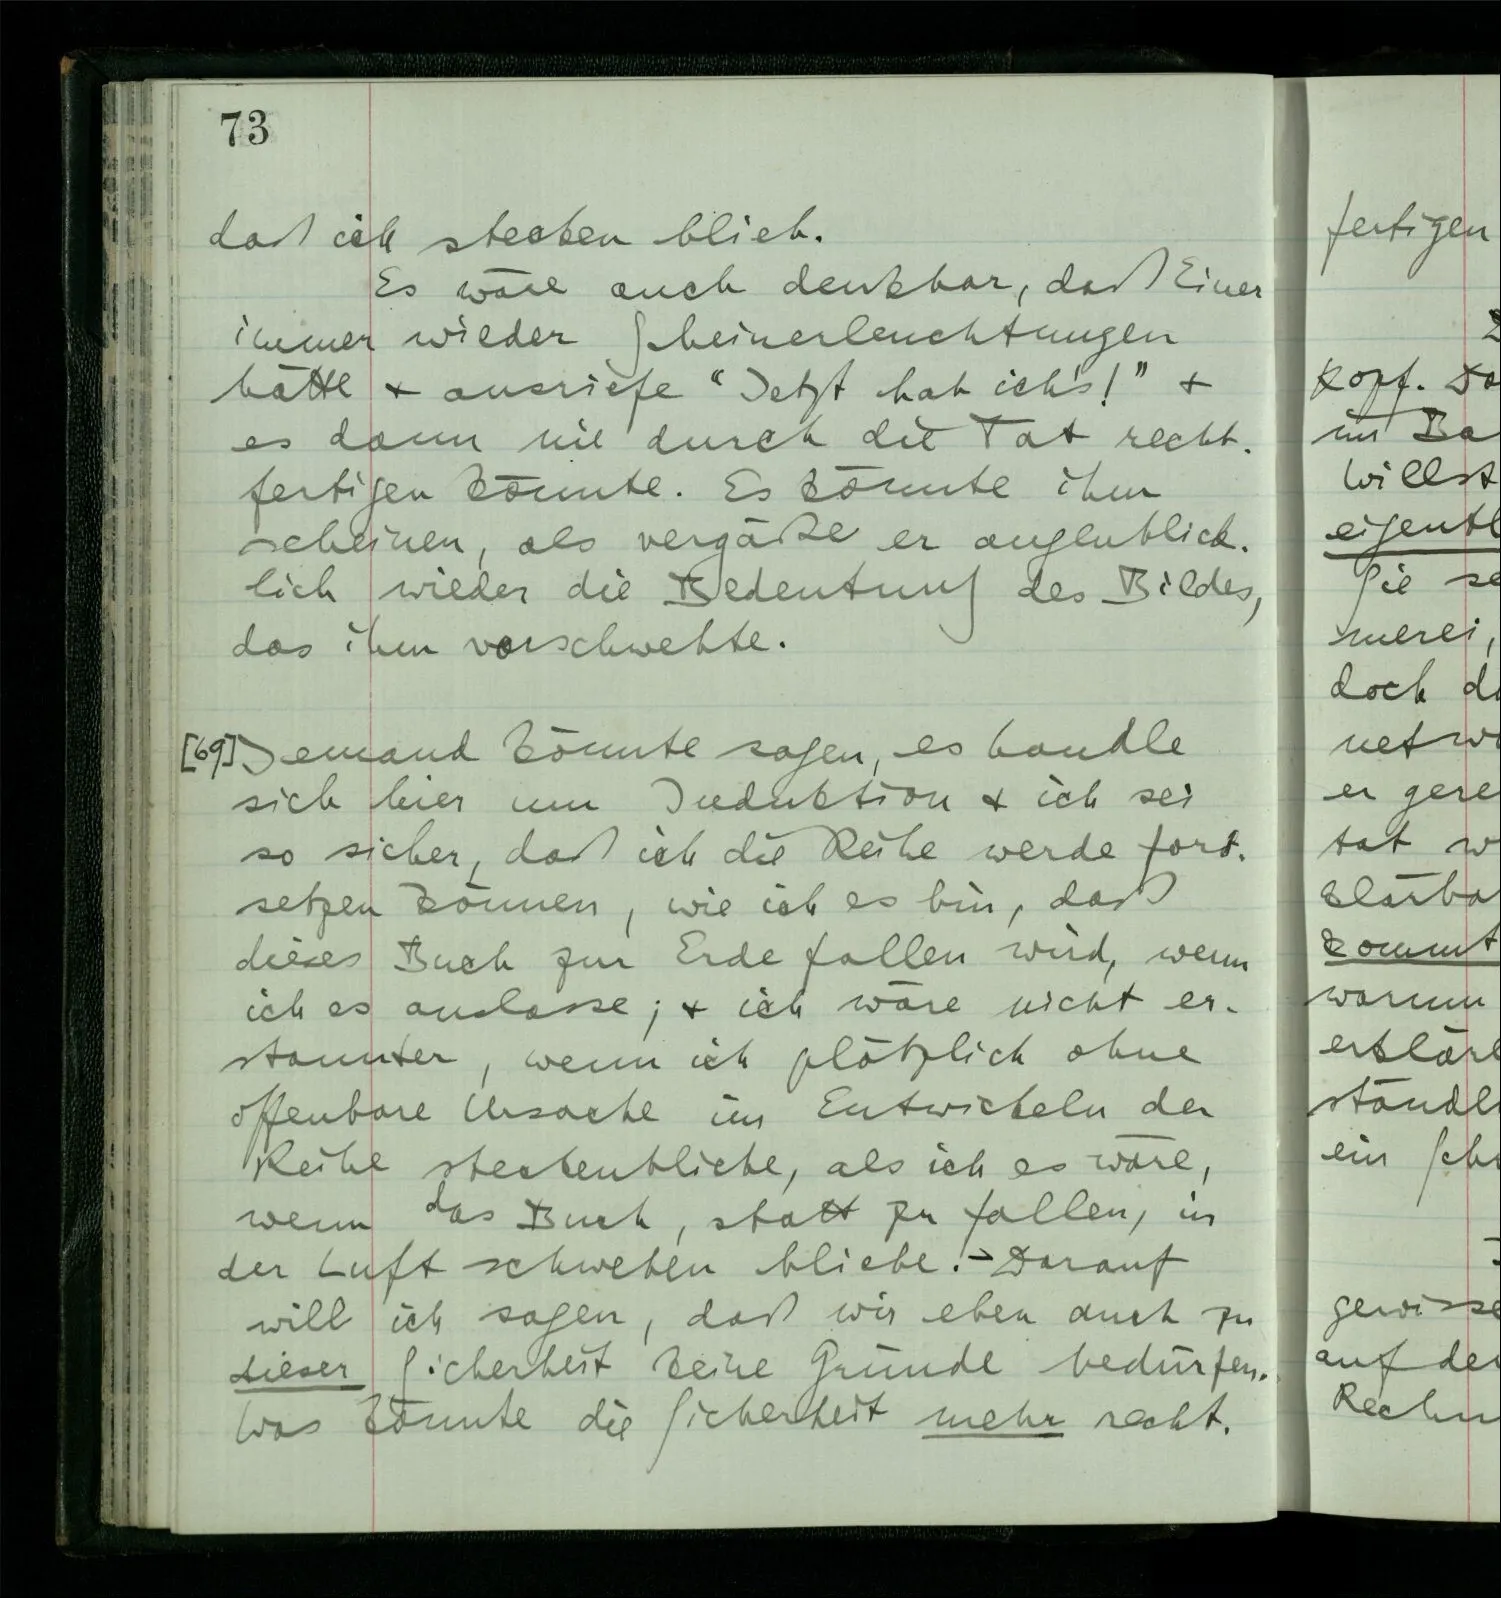 73
daß ich stecken blieb.
Es wäre auch denkbar, daß Einer
immer wieder Scheinerleuchtungen
hätte & ausriefe “Jetzt hab ich's!” &
es dann nie durch die Tat recht-
fertigen könnte. Es könnte ihm
scheinen, als vergäße er augenblick-
lich wieder die Bedeutung des Bildes,
das ihm vorschwebte.
[69] Jemand könnte sagen, es handle
sich hier um Induktion & ich sei
so sicher, daß ich die Reihe werde fort-
setzen können, wie ich es bin, daß
dieses Buch zur Erde fallen wird, wenn
ich es auslasse; & ich wäre nicht er-
staunter, wenn ich plötzlich ohne
offenbare Ursache im Entwickeln der
Reihe steckenbliebe, als ich es wäre,
wenn das Buch, statt zu fallen, in
der Luft schweben bliebe. – Darauf
will ich sagen, daß wir eben auch zu
dieser Sicherheit keine Gründe bedürfen.
Was könnte die Sicherheit mehr recht-
fertigen
Kopf. Da
im
willst
eigentl
Sie se
merei,
doch d
net wi
er gere
tat w
klärba
kommt
warum
erklärl
ständl
ein Sch
gewisse
auf de
Rechn